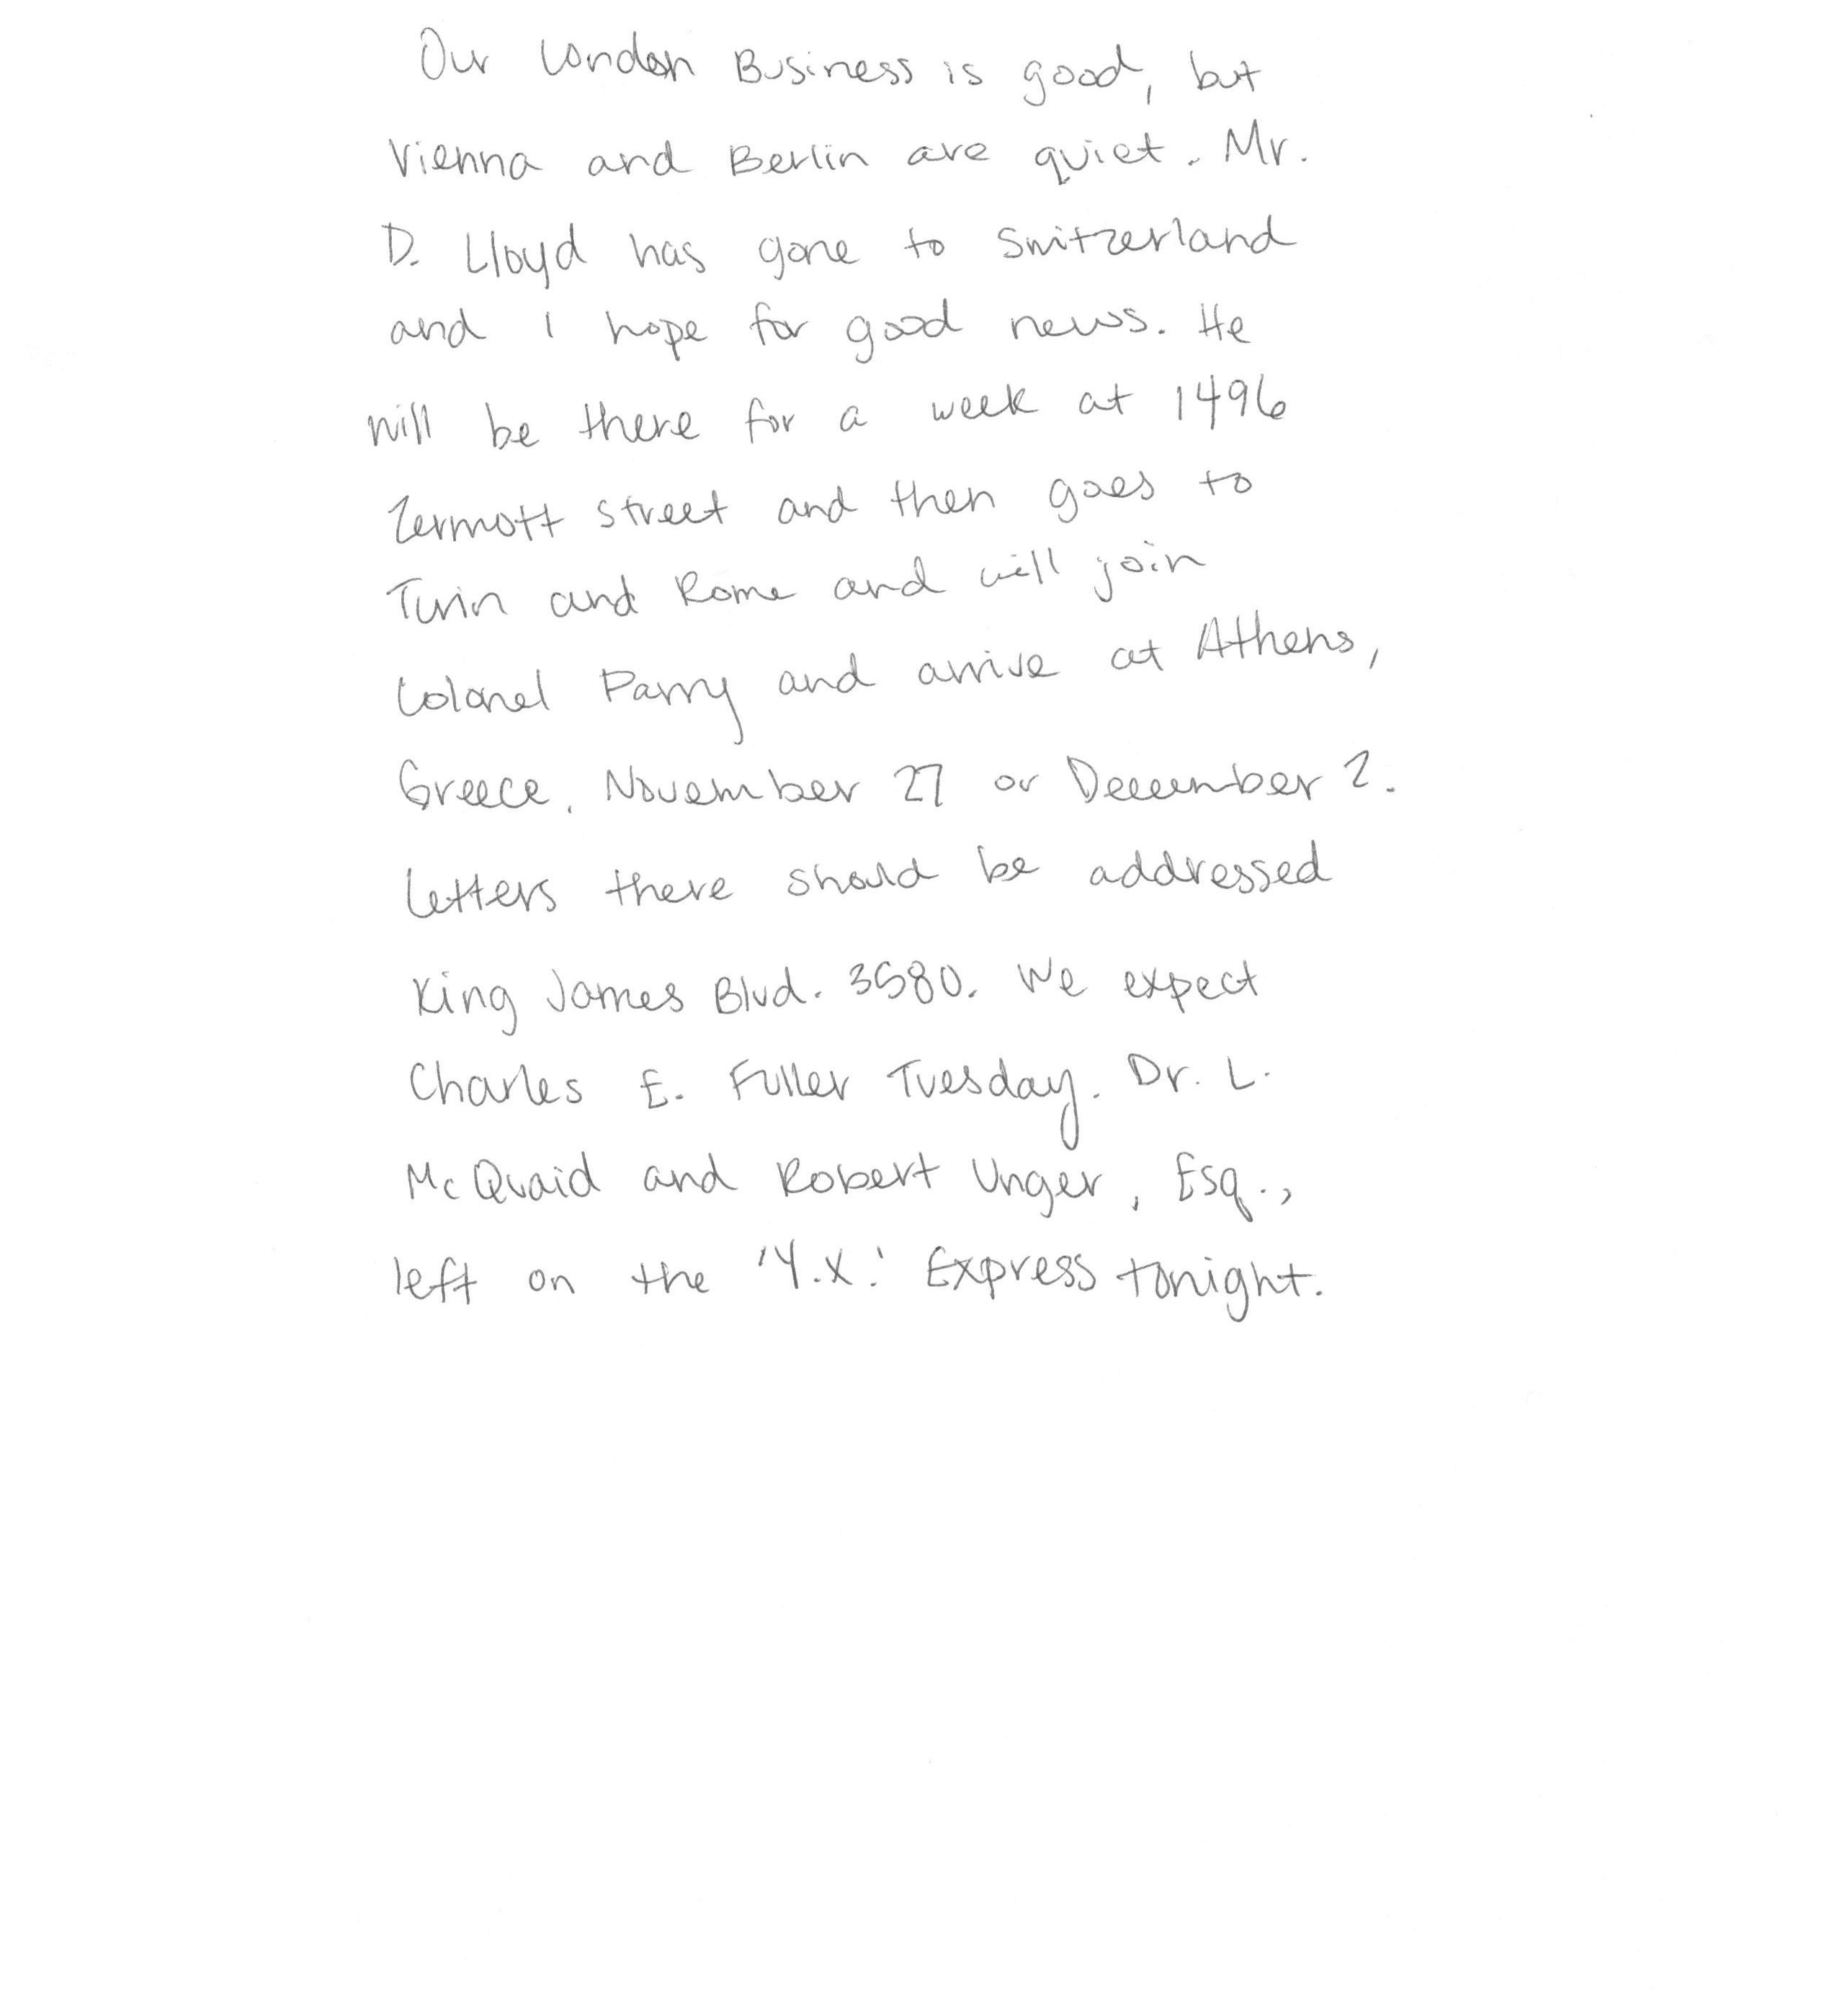 Our London Business is good, but
Vienna and Berlin are quiet. Mr.
D. Lloyd has gone to Switzerland
and I hope for good news. He
will be there for a week at 1496
Zermott street and then goes to
Turin and Rome and will join
Colonel Parry and arrive at Athens,
Greece, November 27 or December 2.
Letters there should be addressed
King James Blvd. 3580. We expect
Charles E. Fuller Tuesday. Dr. L.
McQuaid and Robert Unger, Esq.,
left on the 'Y.X.' Express tonight.